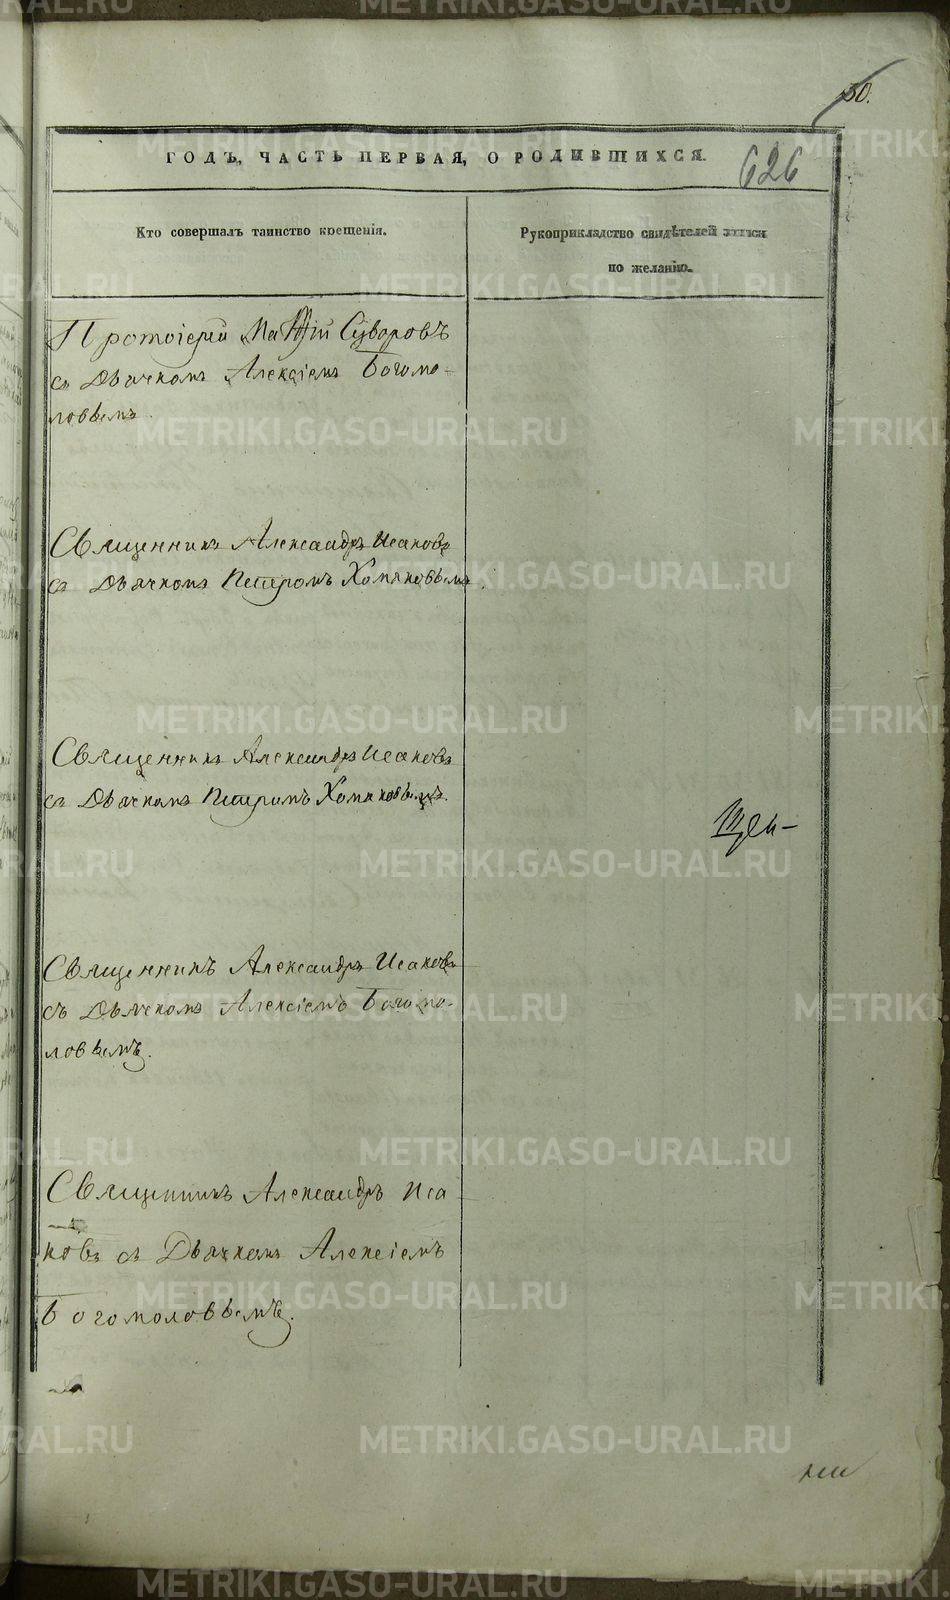 50.
ГОДЪ, ЧАСТЬ ПЕРВАЯ, О РОДИВШИХСЯ.
626
Кто совершалъ таинство крещенія.
Рукоприкладство свидѣтелей записи
по желанію.
Протоіерей Матѳій Суворовъ
съ Дьячкомъ Алексіемъ Богомо-
ловымъ.
Священникъ Александръ Исаковъ
съ Дьячкомъ Петромъ Хомяковымъ.
Священникъ Александръ Исаковъ
съ Дьячкомъ Петромъ Хомяковымъ.
Священникъ Александръ Исаковъ
съ Дьячкомъ Алексіемъ Богомо-
ловымъ.
Священникъ Александръ Иса
ковъ съ Дьячкомъ Алексіемъ
Богомоловымъ.
METRIKI.GASO-URAL.RU